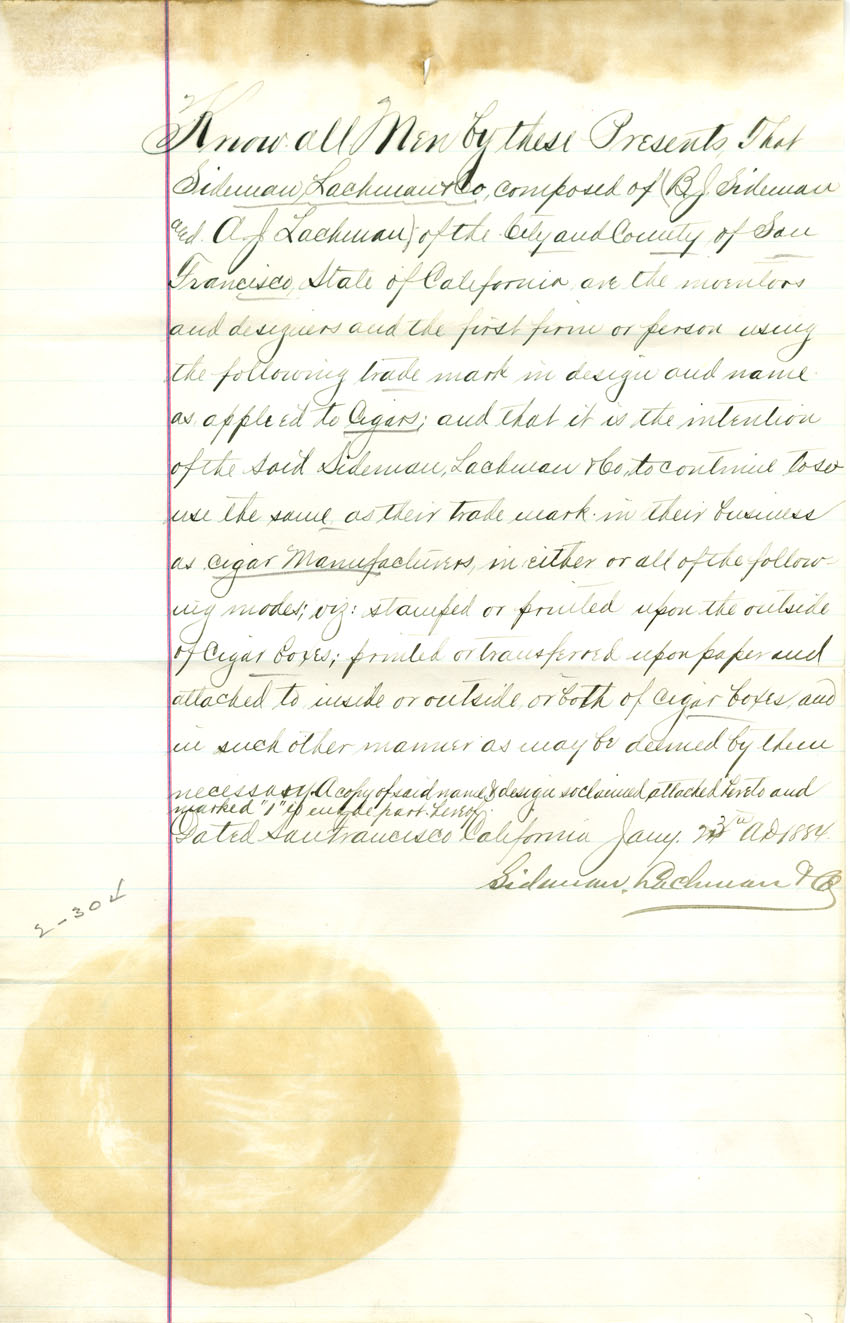 Know all Men by these Presents, That
Sideman, Lachman & Co, composed of (B. J. Sideman
and A. J. Lachman) of the City and County of San
Francisco, State of California are the inventors
and designers and the first firm or person using
the following trade mark in design and name
as applied to Cigars; and that it is the intention
of the said Sideman, Lachman & Co, to continue to so
use the same as their trade mark in their business
as cigar Manufacturers, in either or all of the follow-
ing modes; viz: stamped or printed upon the outside
of cigar boxes; printed or transferred upon paper and
attached to inside or outside, or both of cigar boxes, and
in such other manner as may be deemed by them
necessary. A copy of said name & design so claimed, attached hereto and
marked "1" is made part hereof.
Dated San Francisco California Jany. AD 1884.
Sideman, Lachman & Co
2-30